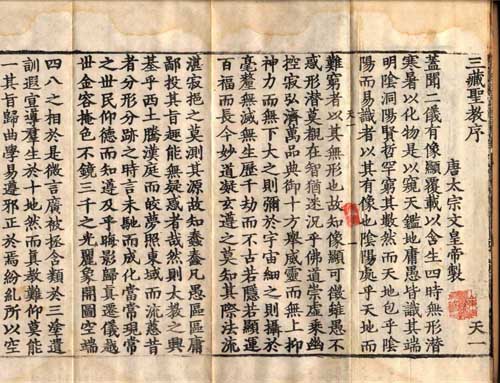 三藏聖教序
天一
唐太宗文皇帝製
蓋聞二儀有像顯覆載以含生四時無形潛
寒暑以化物是以窺天鑑地庸愚皆識其端
明陰洞陽賢哲罕窮其數然而天地包乎陰
陽而易識者以其有像也陰陽處乎天地而
難窮者以其無形也故知像顯可徵雖愚不
惑形潛莫覩在智猶迷況乎佛道崇虛乘幽
控寂弘濟萬品典御十方舉威靈而無上抑
神力而無下大之則彌於宇宙細之則攝於
毫釐無滅無生歷千劫而不古若隱若顯運
百福而長今妙道凝玄遵之莫知其際法流
湛寂挹之莫測其源故知蠢蠢凡愚區區庸
鄙投其旨趣能無疑惑者哉然則大教之興
基乎西土騰漢庭而皎夢照東域而流慈昔
者分形分跡之時言未馳而成化當常現常
之世民仰德而知遵及乎晦影歸真遷儀越
世金容掩色不鏡三千之光麗象開圖空端
四八之相於是微言廣被拯含類於三塗遺
訓遐宣導羣生於十地然而真教難仰莫能
一其旨歸曲學易遵邪正於焉紛糺所以空